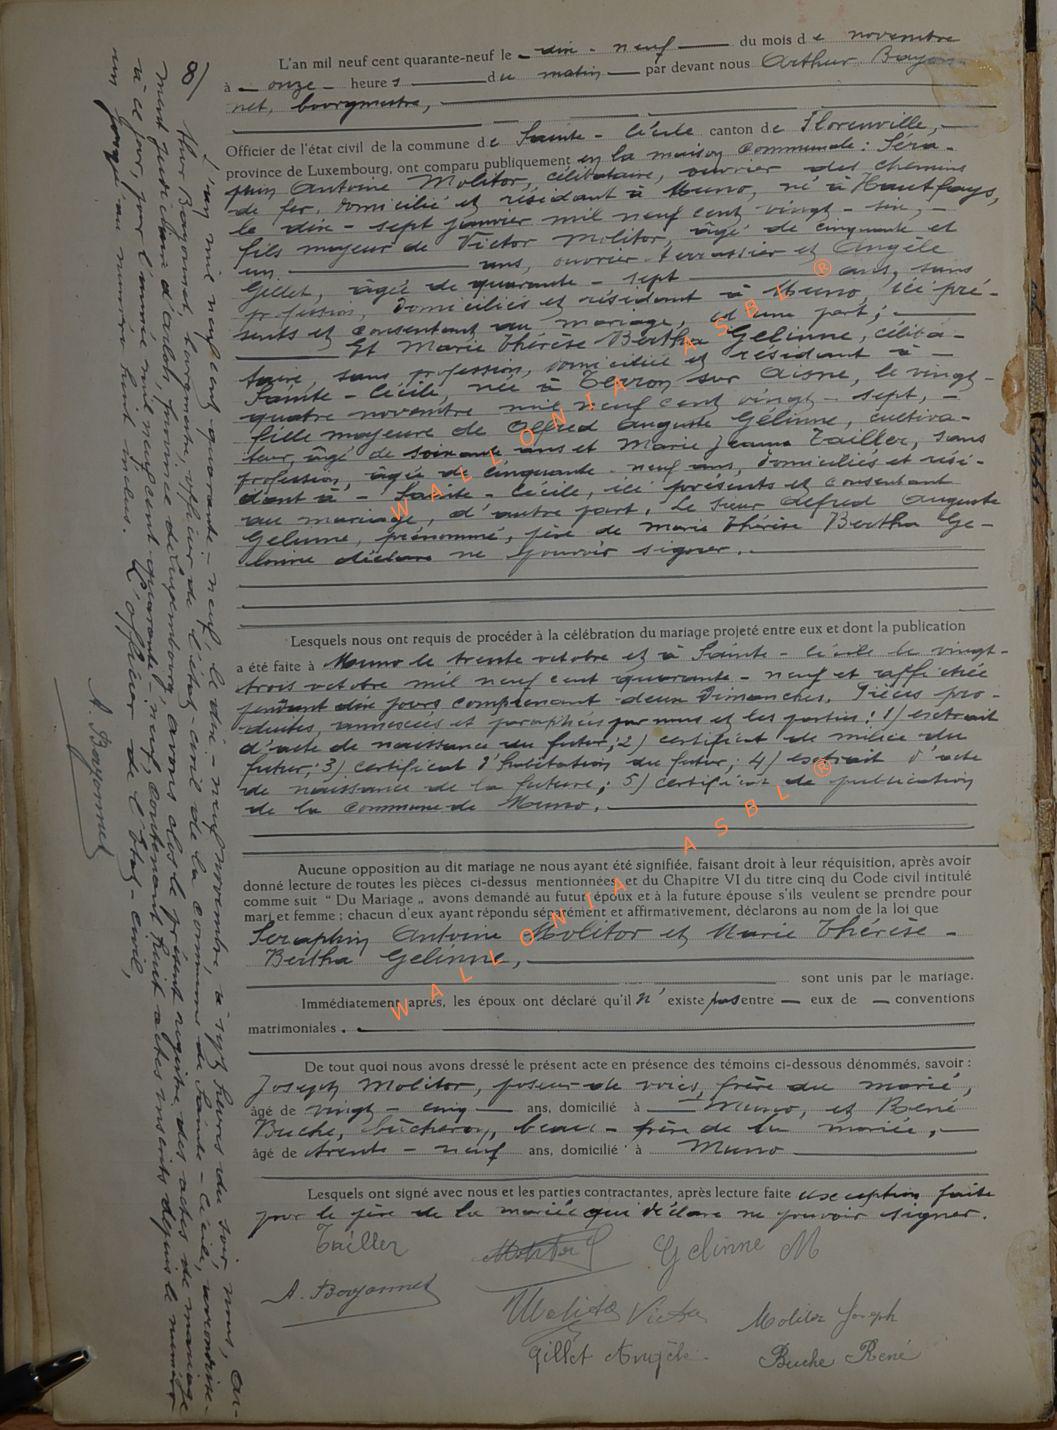 L'an mil neuf cent quarante-neuf le - dix - neuf - du mois de novembre
à - onze - heures du matin par devant nous Arthur Bayon-
net, bourgmestre,
Officier de l'état civil de la commune de Sainte - Cécile canton de Florenville,
province de Luxembourg, ont comparu publiquement en la maison communale : Séra-
phin Antoine Molitor, célibataire, ouvrier des chemins
de fer, domicilié et résidant à Muno, né à Hautfays,
le dix - sept janvier mil neuf cent vingt - six, -
fils majeur de Victor Molitor, âgé de cinquante et
un ans, ouvrier terrassier et Angèle
Gillet, âgée de quarante - sept ans, sans
profession, domiciliés et résidant à Muno, ici pré-
sents et consentant au mariage, d'une part ;
Et Marie Thérèse Bertha Gelinne, céliba-
taire, sans profession, domiciliée et résidant à -
Sainte - Cécile, née à Terron sur Aisne, le vingt-
quatre novembre mil neuf cent vingt - sept, -
fille majeure de Alfred Auguste Gélinne, cultiva-
teur, âgé de soixante ans et Marie Jeanne Tailler, sans
profession, âgée de cinquante - neuf ans, domiciliés et rési-
dant à - Sainte - Cécile, ici présents et consentant
au mariage, d'autre part. Le sieur Alfred Auguste
Gelinne, prénommé, père de Marie Thérèse Bertha Ge-
linne déclare ne pouvoir signer.
Lesquels nous ont requis de procéder à la célébration du mariage projeté entre eux et dont la publication
a été faite à Muno le trente octobre et à Sainte - Cécile le vingt-
trois octobre mil neuf cent quarante - neuf et affichée
pendant dix jours comprenant deux dimanches. Pièces pro-
duites, annexées et paraphées par nous et les parties : 1) extrait
d'acte de naissance du futur ; 2) certificat de milice du
futur ; 3) certificat d'habitation du futur ; 4) extrait d'acte
de naissance de la future ; 5) certificat de publication
de la commune de Muno.
Aucune opposition au dit mariage ne nous ayant été signifiée, faisant droit à leur réquisition, après avoir
donné lecture de toutes les pièces ci-dessus mentionnées et du Chapitre VI du titre cinq du Code civil intitulé
comme suit “ Du Mariage „ avons demandé au futur époux et à la future épouse s'ils veulent se prendre pour
mari et femme ; chacun d'eux ayant répondu séparément et affirmativement, déclarons au nom de la loi que
Seraphin Antoine Molitor et Marie Thérèse -
Bertha Gelinne,
sont unis par le mariage.
Immédiatement après, les époux ont déclaré qu'il n'existe pas entre - eux de - conventions
matrimoniales .
De tout quoi nous avons dressé le présent acte en présence des témoins ci-dessous dénommés, savoir :
Joseph Molitor, poseur de voies, frère du marié,
âgé de vingt - cinq ans, domicilié à Muno, et René
Buche, bûcheron, beau - frère de la mariée,
âgé de trente - neuf ans, domicilié à Muno
Lesquels ont signé avec nous et les parties contractantes, après lecture faite exception faite
pour le père de la mariée qui déclare ne pouvoir signer.
Tailler Gelinne M
A. Bayonnet Molitor Victor Molitor Joseph
Gillet Angèle Buche René
L'an mil neuf cent quarante - neuf, le dix - neuf novembre, à sept heures du soir, nous, Ar-
thur Bayonnet, bourgmestre, officier de l'état - civil de la commune de Sainte - Cécile, arrondisse-
ment judiciaire d'Arlon, province de Luxembourg, avons clos le présent registre des actes de mariage
à ce jour, pour l'année mil neuf cent quarante - neuf, contenant huit actes inscrits depuis le numéro
un jusqu'au numéro huit inclus. L'officier de l'état - civil,
A Bayonnet
8/
WALLONIA ASBL ®
WALLONIA ASBL ®